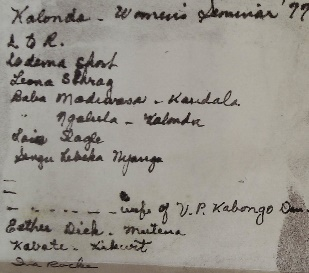 Kalonda - Women's Seminar '77
L to R.
Lodema Short
Leona Schrag
Baba Madiwasa - Kandala
" Ngalula - Kalonda
Lois Slagle
Sengu Lebeka Nyanga
-
- - - - - - wife of V.P. Kabongo Dan.
Esther Dick - Mutena
Kabate - Kikwit
Ina Rocke